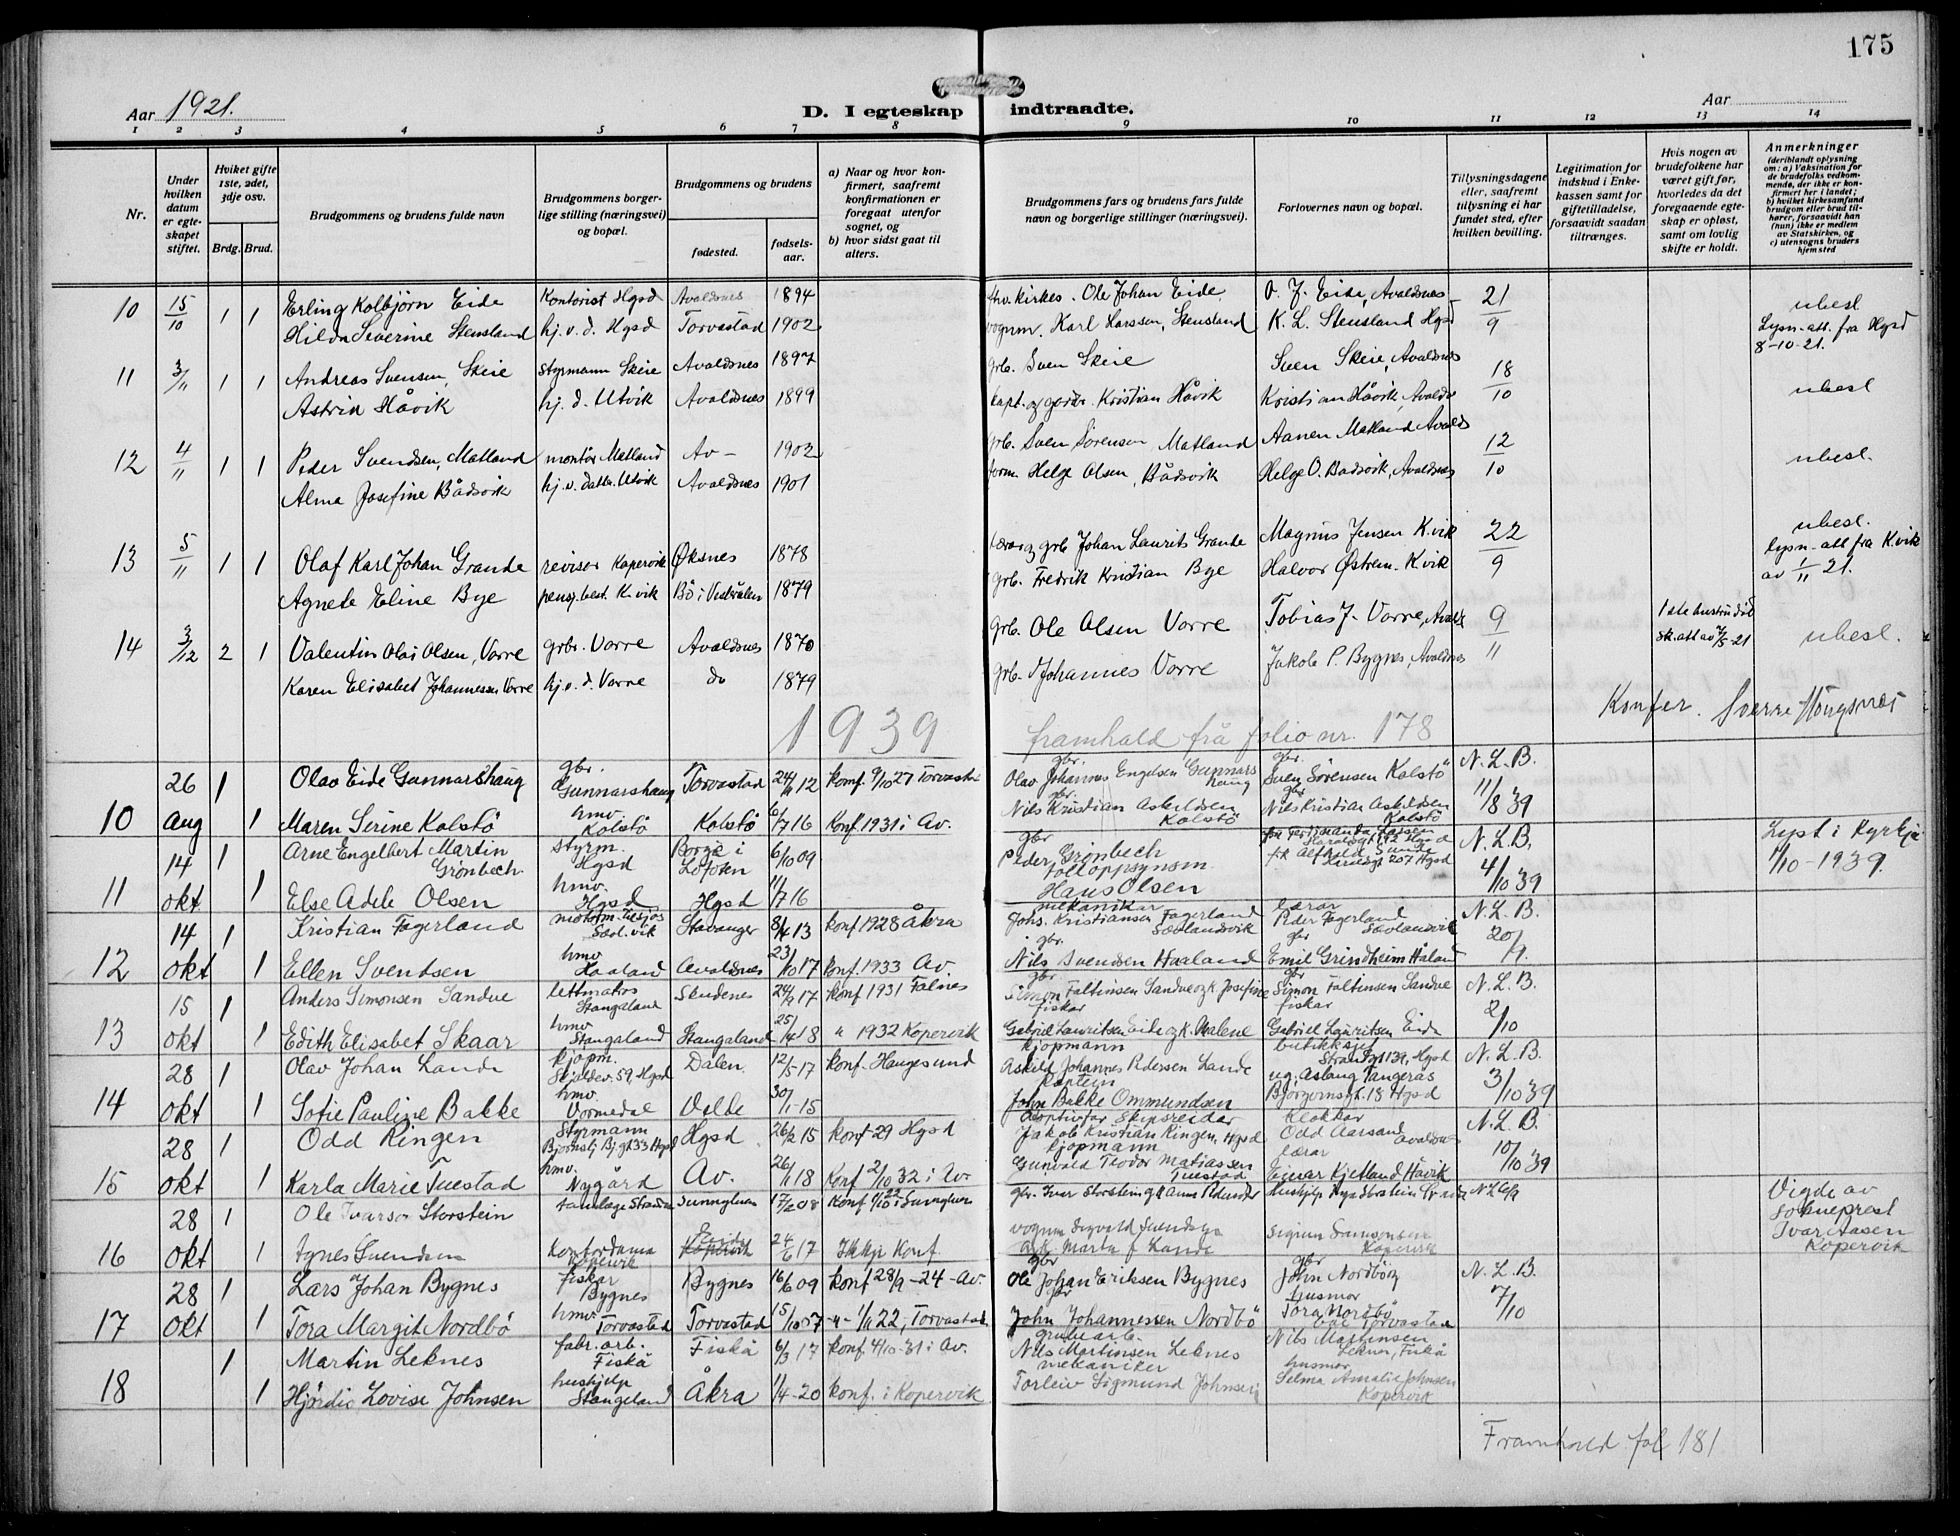 175
Aar 1921.
D. I egteskap indtraadte.
Aar
1 2 3 4 5 6 7 8 9 10 11 12 13 14
Nr.
Under hvilken datum er egteskapet stiftet.
Hviket gifte 1ste, 2det, 3dje osv.
Brdg. Brud.
Brudgommens og brudens fulde navn
Brudgommens borgerlige stilling (næringsvei) og bopæl.
Brudgommens og brudens
fødested.
fødselsaar.
a) Naar og hvor konfirmert, saafremt konfirmationen er foregaat utenfor sognet, og
b) hvor sidst gaat til alters.
Brudgommens fars og brudens fars fulde navn og borgerlige stillinger (næringsvei).
Forlovernes navn og bopæl.
Tillysningsdagene eller, saafremt tillysning ei har fundet sted, efter hvilken bevilling.
Legitimation for indskud i Enkekassen samt for giftetilladelse, forsaavidt saadan tiltrænges.
Hvis nogen av brudefolkene har været gift før, hvorledes da det foregaaende egteskap er opløst, samt om lovlig skifte er holdt.
Anmerkninger
(deriblandt oplysning om: a) Vaksination for de brudefolks vedkommende, der ikke er konfirmert her i landet; b) hvilket kirkesamfund brudgom eller brud tilhører, forsaavidt han (hun) ikke er medlem av Statskirken, og c) utensogns bruders hjemsted
10 15/10 1 1 Erling Kolbjørn Eide Kontorist Hgsd Avaldsnes 1894 fhv. kirkes. Ole Johan Eide O. J. Eide, Avaldsnes 21/9 ubesl.
Hilda Severine Stensland hj. v. d. Hgsd Torvastad 1902 vognm. Karl Larssen, Stensland K. L. Stensland Hgsd Lysn.-att. fra Hgsd 8-10-21.
11 3/11 1 1 Andreas Svensen, Skeie styrmann Skeie Avaldsnes 1897 grb. Sven Skeie Sven Skeie, Avaldsnes 18/10 ubesl
Astrid Håvik hj. d. Utvik Avaldsnes 1899 kapt. og gardbr. Kristian Håvik Kristian Håvik, Avaldsn
12 4/11 1 1 Peder Svendsen, Matland montør Matland Av- 1902 grb. Sven Sørensen Matland Aanen Matland Avalds 12/10 ubesl.
Alma Josefine Bådsvik hj. v. datter Utvik Avaldsnes 1901 form. Helge Olsen, Bådsvik Helge O. Badsvik, Avaldsnes
13 5/11 1 1 Olaf Karl Johan Grande revisor Kopervik Øksnes 1878 lærer og grb Johan Laurits Grande Magnus Jensen K.vik 22/9 ubesl.
Agnete Eline Bye K.vik Bö i Vesterålen 1879 grb. Fredrik Kristian Bye Halvor Østrem. K.vik lysn-att fra K.vik av 1/11 21.
14 3/12 2 1 Valentin Olai Olsen, Vorre grbr. Vorre Avaldsnes 1870 grb. Ole Olsen Vorre Tobias J. Vorre, Avalds 9/11 1ste hustru død sk. att av 7/5-21 ubesl.
Karen Elisabet Johannessen Vorre hj. v. d. Vorre do 1879 grb. Johannes Vorre Jakob P. Bygnes, Avaldsnes
Konfer. Sverre
1939 framhald frå folio nr. 178
10 26 Aug 1 Olav Eide Gunnarshaug gbr. Gunnarshaug Torvastad 24/11 12 konf. 9/10 27 Torvasta gbr. Olav Johannes Engelsen Gunnarshaug gbr. Sven Sørensen Kolstö N. L. B.
1 Maren Serine Kolstö hmv. Kolstö Kolstö 6/7 16 Konf. 1931 i Av. gbr. Nils Kristian Askildsen Kolstö gbr Nils Kristian Askildsen Kolstö 11/8 39
11 14 okt. 1 Arne Engelbert Martin Grönbech styrm. Hgsd Borge i Lofoten 6/10 09 Peder Grönbech tolloppsynsm. N. L. B. Lyst i Kyrkja 1/10-1939.
1 Else Adele Olsen hmv. Hgsd Hgsd 11/7 16 Hans Olsen 4/10 39
12 14 okt 1 Kristian Fagerland Stavanger 8/4 13 konf 1928 Åkra mekanikar Johs. Kristiansen Fagerland Sævlandsvik lærar Peder Fagerland Sævlandsvik N. L. B.
1 Ellen Svendsen hmv. Haaland Avaldsnes 23/10 17 konf. 1933 Av. gbr. Nils Svendsen Haaland gbr Emil Grindheim Håland 20/9.
13 15 okt 1 Anders Simonsen Sandve lettmatros Stangaland Skudenes 24/9 17 konf 1931 Falnes gbr. Simon Faltinsen Sandve og k. Josefine gbr Simon Faltinsen Sandve N. L. B.
1 Edith Elisabet Skaar hmv Stangaland Stangaland 25/4 18 " 1932 Kopervik fiskar Gabriel Lauritsen Eide og k. Malene fiskar Gabriel Lauritsen Eide 2/10
14 28 okt 1 Olav Johan Lande kjøpm. Skjoldev. 59, Hgsd Dalen. 12/5-17 konf. Haugesund kjøpmann Askild Johannes Pedersen Lande Strandgt 139, Hgsd N. L. B.
1 Sofie Pauline Bakke hmv. Vormedal Velde 30/1-15 kaptein John Bakke Ommundsen ug. Aslaug Tangerås Bjørgvinsgt. 18 Hgsd 3/10 39
15 28 okt 1 Odd Ringen Styrmann Hgsd 26/2 15 konf-29 Hgsd skipsreidar Jakob Kristian Ringen, Hgsd klokkar Odd Aarsand Avaldsn N. L. B.
1 Karla Marie Tuestad hmv. Nygård Av. 26/1 18 Konf 2/10 32 i Av. kjøpmann Gunvald Teodor Matiassen Tuestad lærar Einar Kjetland Håvik 10/10 39
16 28 okt 1 Ole Ivarsen Storstein 17/2 08 gbr. Iver Storstein N L B Vigde av sokneprest Ivar Aasen Kopervik
1 Agnes Svendsen kontordama Kopervik 24/6 17 Ikkje Konf. vognm Sigvald Svendsen og k. Marta f Lande Sigrun Samsonsen Kopervik
17 28 okt 1 Lars Johan Bygnes fiskar Bygnes Bygnes 16/6 09 konf 28/9-24-Av. gbr Ole Johan Eriksen Bygnes gbr John Nordbö N. L. B.
1 Tora Margit Nordbö hmv. Torvastad Torvastad 15/10 07 -"- 1/11 22, Torvastad gbr John Johannessen Nordbö husmor Tora Nordbö Torvastad 7/10
18 1 Martin Leknes fabr. arb. Fiskå Fiskå 6/3 17 konf 4/10-31 i Av. grubearb. Nils Martinsen Leknes Nils Martinsen Leknes, Fiskå
1 Hjördis Lovise Johnsen hushjelp Stangeland Åkra 1/4-20 konf. i Kopervik mekaniker Torleiv Sigmund Johnsen husmor. Selma Amalie Johnsen Kopervik
Framhald fol 181